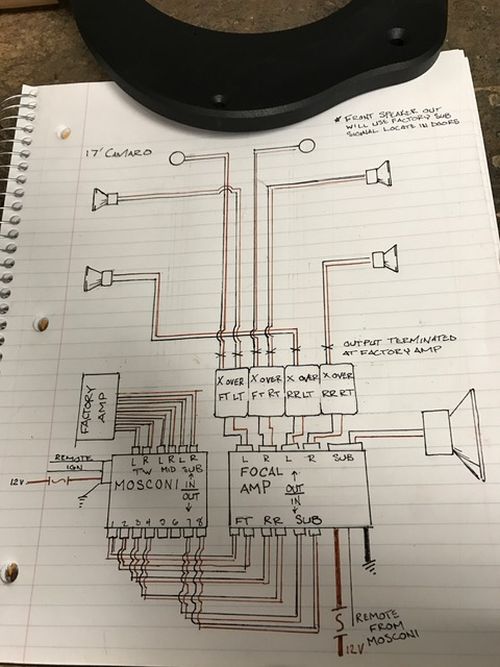 * FRONT SPEAKER OUT
WILL USE FACTORY SUB
SIGNAL LOCATE IN DOORS
17' CAMARO
OUTPUT TERMINATED
AT FACTORY AMP
X OVER
FT LT
X OVER
FT RT
X OVER
RR LT
X OVER
RR RT
FACTORY
AMP
REMOTE
IGN
12V
L R L R L R
TW MID SUB
MOSCONI
IN
OUT
1 2 3 4 5 6 7 8
L R L R SUB
FOCAL
AMP
OUT
IN
FT RR SUB
S
REMOTE
FROM
MOSCONI
12V